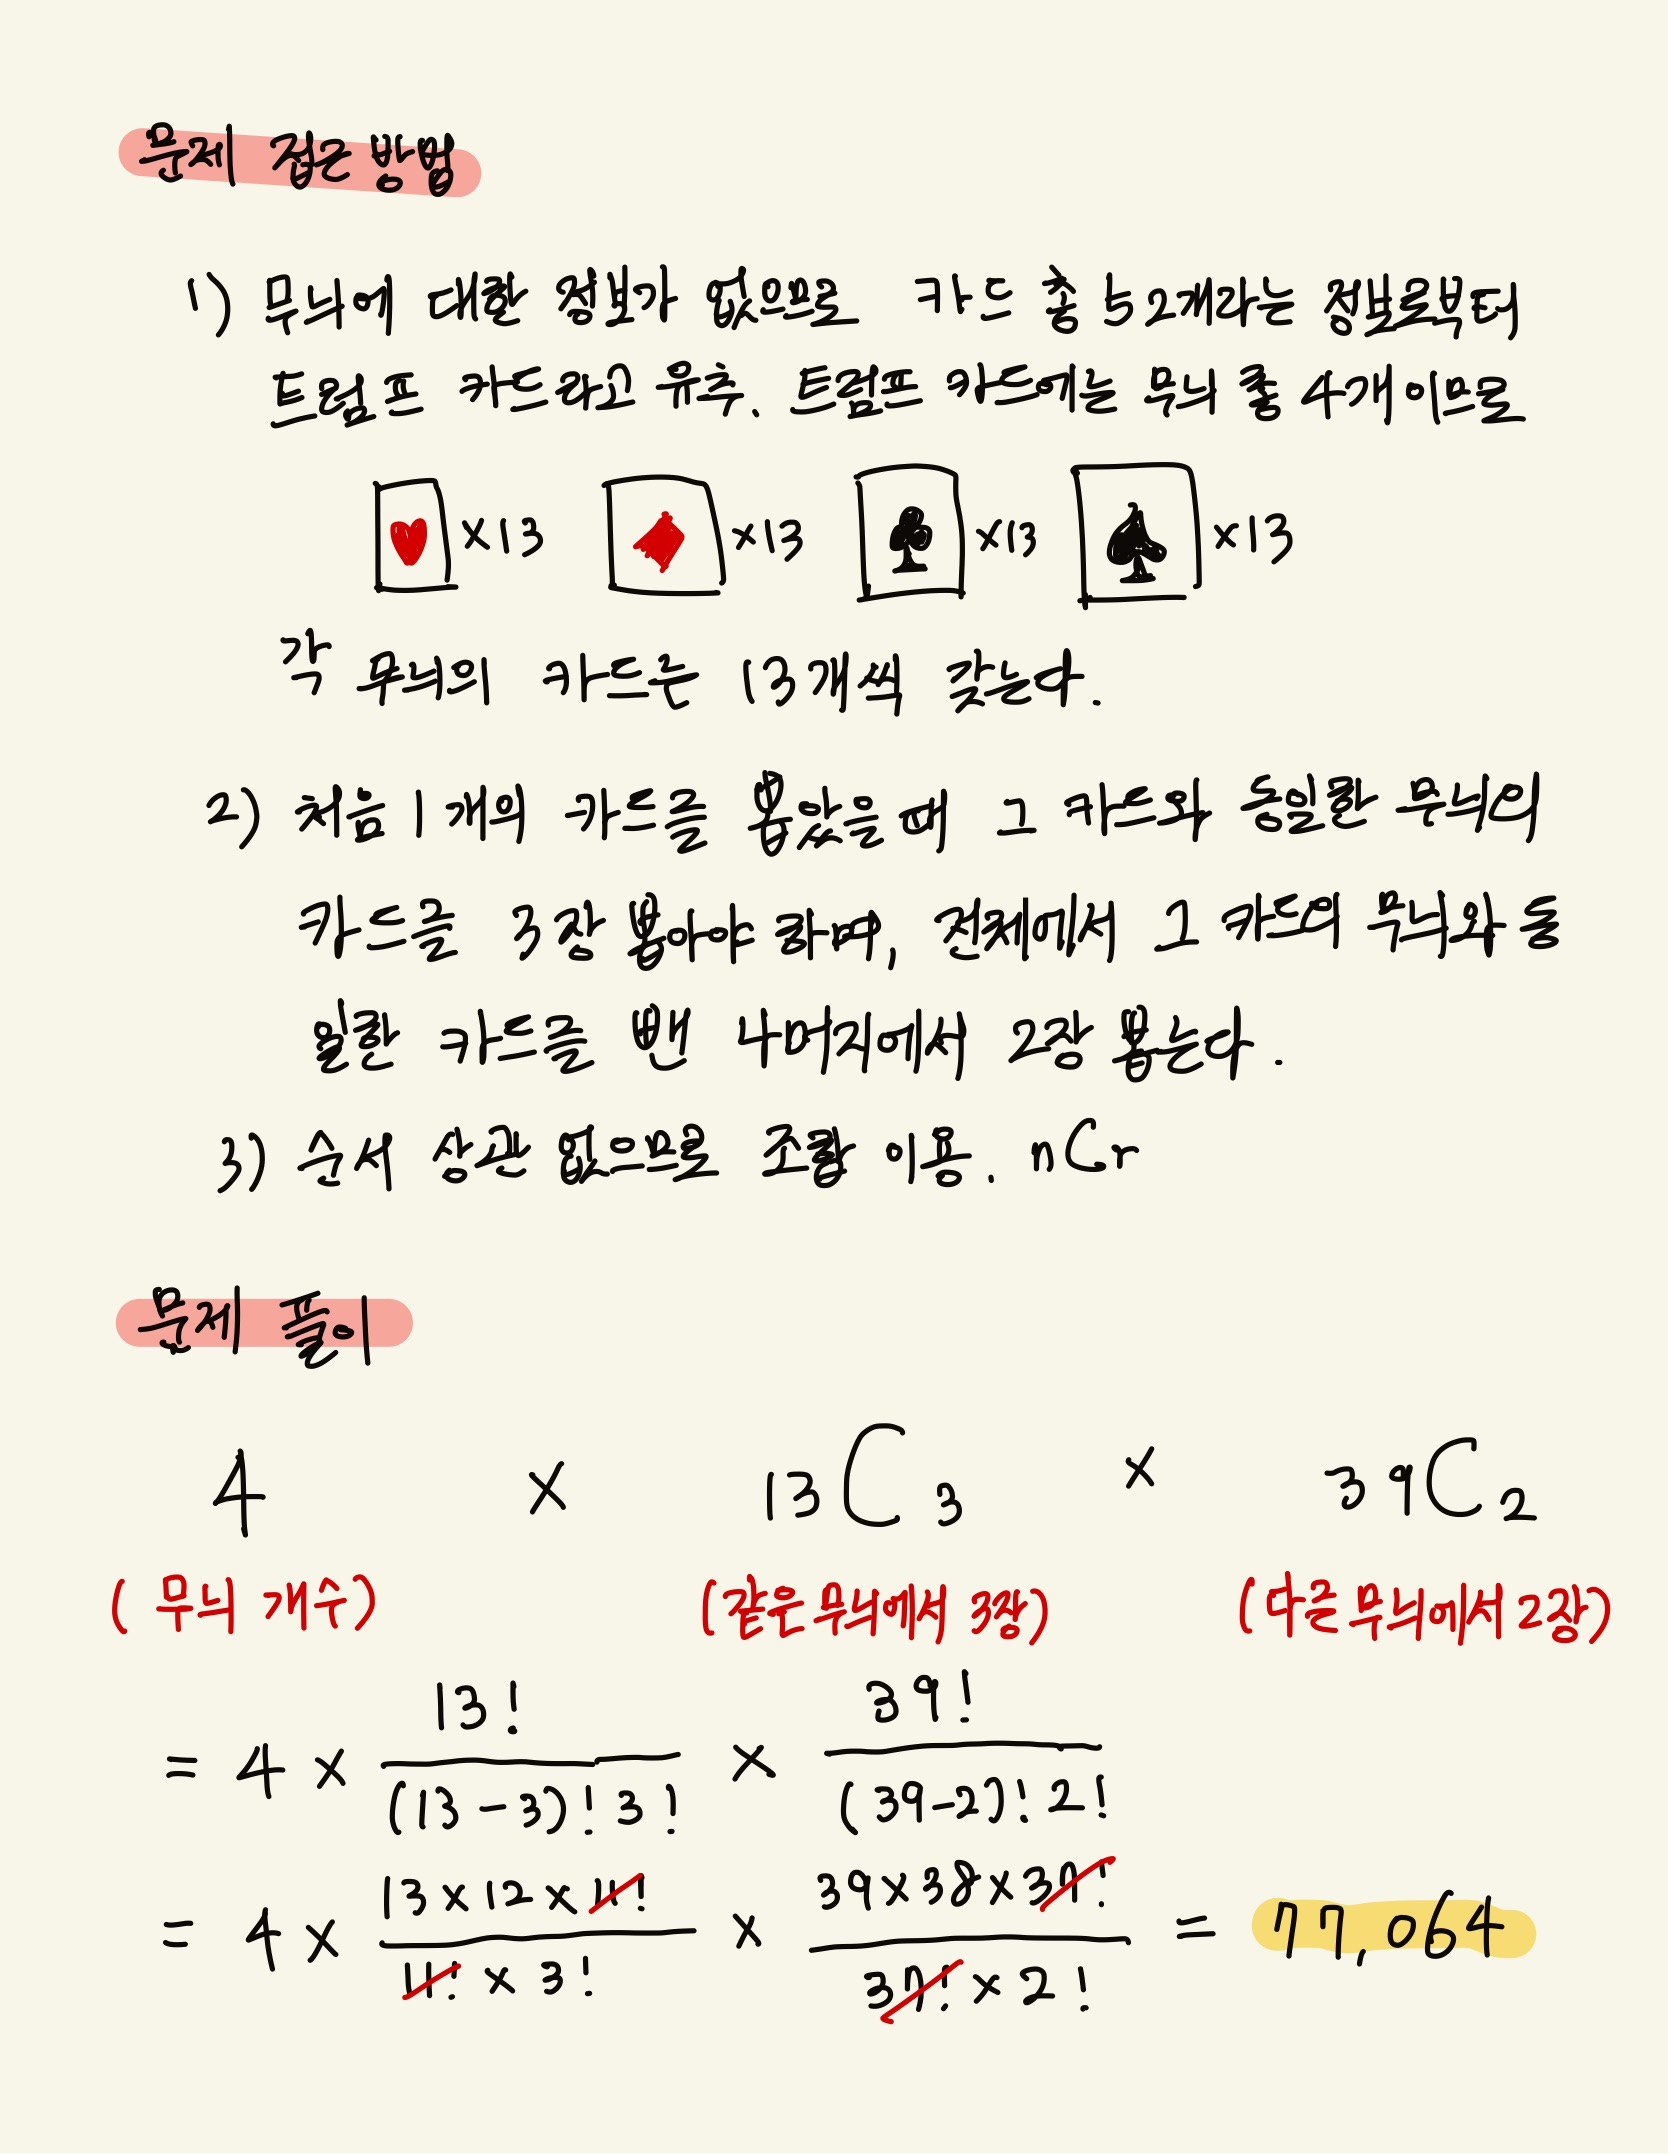 문제 접근 방법
1) 무늬에 대한 정보가 없으므로 카드 총 52개라는 정보로부터
트럼프 카드라고 유추. 트럼프 카드에는 무늬 총 4개이므로
×13 ×13 ×13 ×13
각 무늬의 카드는 13개씩 갖는다.
2) 처음 1개의 카드를 뽑았을 때 그 카드와 동일한 무늬의
카드를 3장 뽑아야 하며, 전체에서 그 카드의 무늬와 동
일한 카드를 뺀 나머지에서 2장 뽑는다.
3) 순서 상관 없으므로 조합 이용. nCr
문제 풀이
4 × 13C3 × 39C2
(무늬 개수) (같은 무늬에서 3장) (다른 무늬에서 2장)
= 4 × 13! / (13-3)! 3! × 39! / (39-2)! 2!
= 4 × 13×12×11! / 11!×3! × 39×38×37! / 37!×2! = 77,064